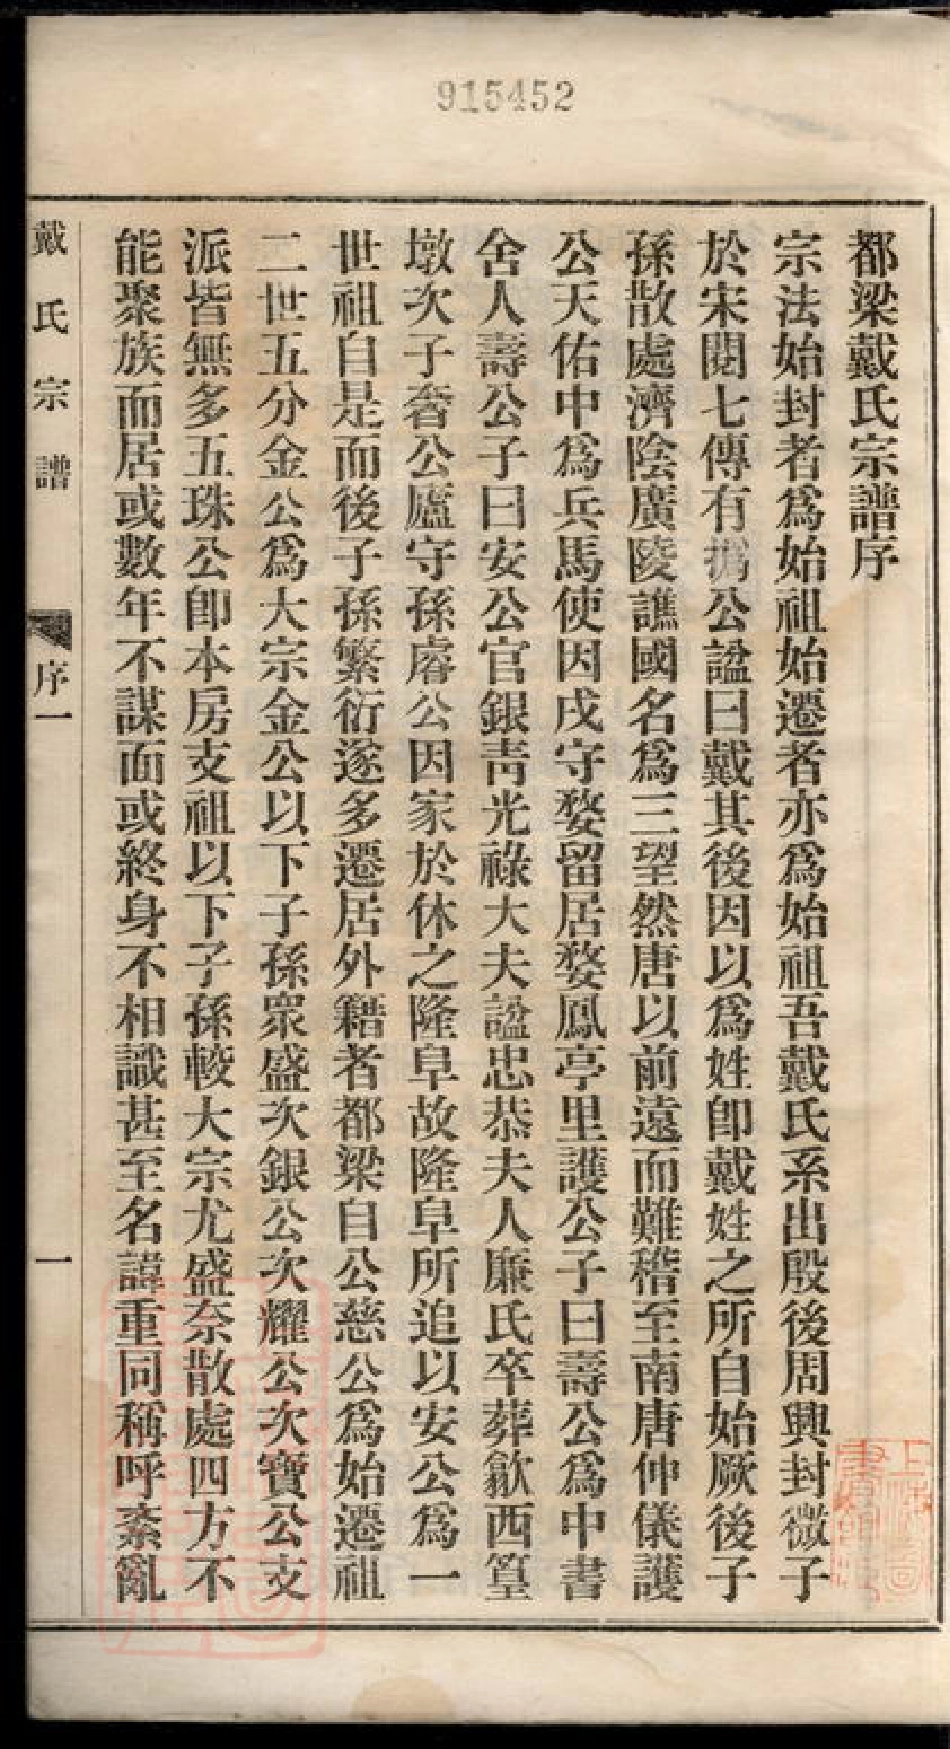 915452
都梁戴氏宗譜序
宗法始封者爲始祖始遷者亦爲始祖吾戴氏系出殷後周興封微子
於宋閱七傳有撝公諡曰戴其後因以爲姓卽戴姓之所自始厥後子
孫散處濟陰廣陵譙國名爲三望然唐以前遠而難稽至南唐仲儀護
公天佑中爲兵馬使因戍守婺留居婺鳳亭里護公子曰壽公爲中書
舍人壽公子曰安公官銀靑光祿大夫諡忠恭夫人廉氏卒葬歙西篁
墩次子奢公廬守孫睿公因家於休之隆阜故隆阜所追以安公爲一
世祖自是而後子孫繁衍遂多遷居外籍者都梁自公慈公爲始遷祖
二世五分金公爲大宗金公以下子孫衆盛次銀公次耀公次寶公支
派皆無多五珠公卽本房支祖以下子孫較大宗尤盛奈散處四方不
能聚族而居或數年不謀面或終身不相識甚至名諱重同稱呼紊亂
戴氏宗譜 序一 一